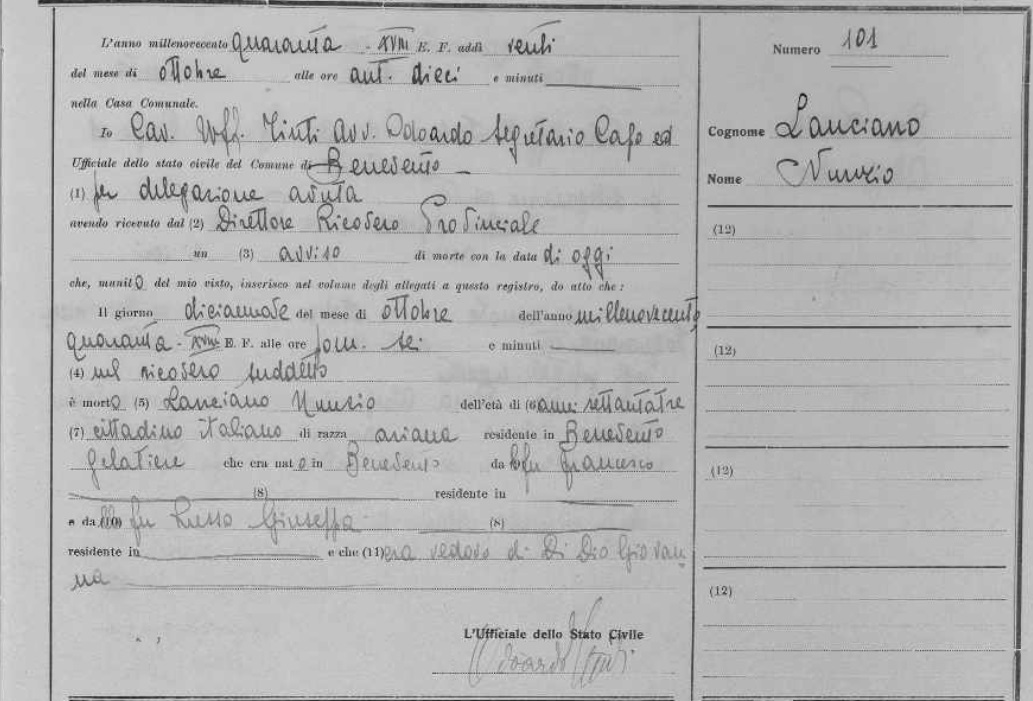 L'anno millenovecento quaranta - XVIII E. F. addì venti
del mese di ottobre alle ore ant. dieci e minuti
nella Casa Comunale.
Io Cav. Uff. Tinti Avv. Odoardo Segretario Capo ed
Ufficiale dello stato civile del Comune di Benevento
(1) per delegazione avuta
avendo ricevuto dal (2) Direttore Ricovero Provinciale
un (3) avviso di morte con la data di oggi
che, munito del mio visto, inserisco nel volume degli allegati a questo registro, do atto che:
Il giorno diciannove del mese di ottobre dell'anno millenovecento
quaranta - XVIII E. F. alle ore pom. sei e minuti
(4) nel ricovero suddetto
è morto (5) Lanciano Nunzio dell'età di (6) anni settantatre
(7) cittadino italiano di razza ariana residente in Benevento
gelatiere che era nato in Benevento da fu Francesco
(8) residente in
e da (10) fu Russo Giuseppa (8)
residente in e che (11) era vedovo di Di Dio Giovan-
na
L'Ufficiale dello Stato Civile
Odoardo Tinti
Numero 101
Cognome Lanciano
Nome Nunzio
(12)
(12)
(12)
(12)